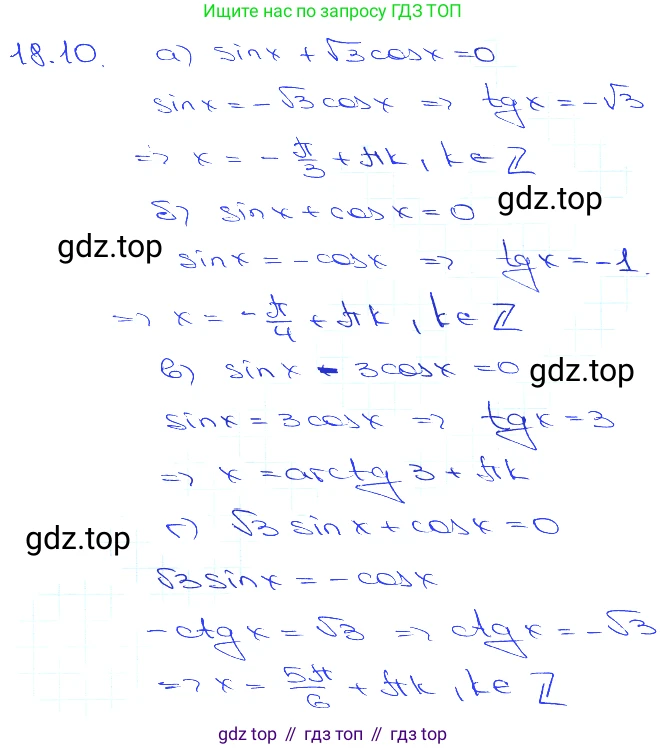 Ищите нас по запросу ГДЗ ТОП
18.10. а) sinx + √3 cosx = 0
sinx = -√3 cosx => tgx = -√3
=> x = -π/3 + πk, k ∈ ℤ
gdz.top
б) sinx + cosx = 0
gdz.top
sinx = -cosx => tgx = -1.
=> x = -π/4 + πk, k ∈ ℤ
в) sinx - 3cosx = 0
gdz.top
sinx = 3cosx => tgx = 3
=> x = arctg 3 + πk
г) √3 sinx + cosx = 0
gdz.top
√3 sinx = -cosx
-ctgx = √3 => ctgx = -√3
=> x = 5π/6 + πk, k ∈ ℤ
gdz.top // гдз топ // гдз.top